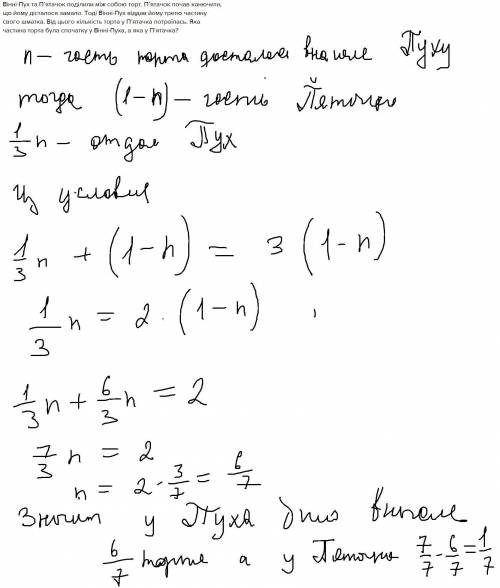 Вінні-Пух та П'ятачок поділили між собою торт. П'ятачок почав канючити,
що йому дісталося замало. Тоді Вінні-Пух віддав йому третю частину
свого шматка. Від цього кількість торта у П'ятачка потроїлась. Яка
частина торта була спочатку у Вінні-Пуха, а яка у П'ятачка?
n - часть торта досталась вначале Пуху
тогда (1-n) - часть Пяточка
1/3 n - отдал Пух
Из условия
1/3 n + (1-n) = 3 (1-n)
1/3 n = 2 · (1-n) ,
1/3 n + 6/3 n = 2
7/3 n = 2
n = 2 · 3/7 = 6/7
Значит у Пуха было вначале
6/7 торта а у Пяточка 7/7 - 6/7 = 1/7